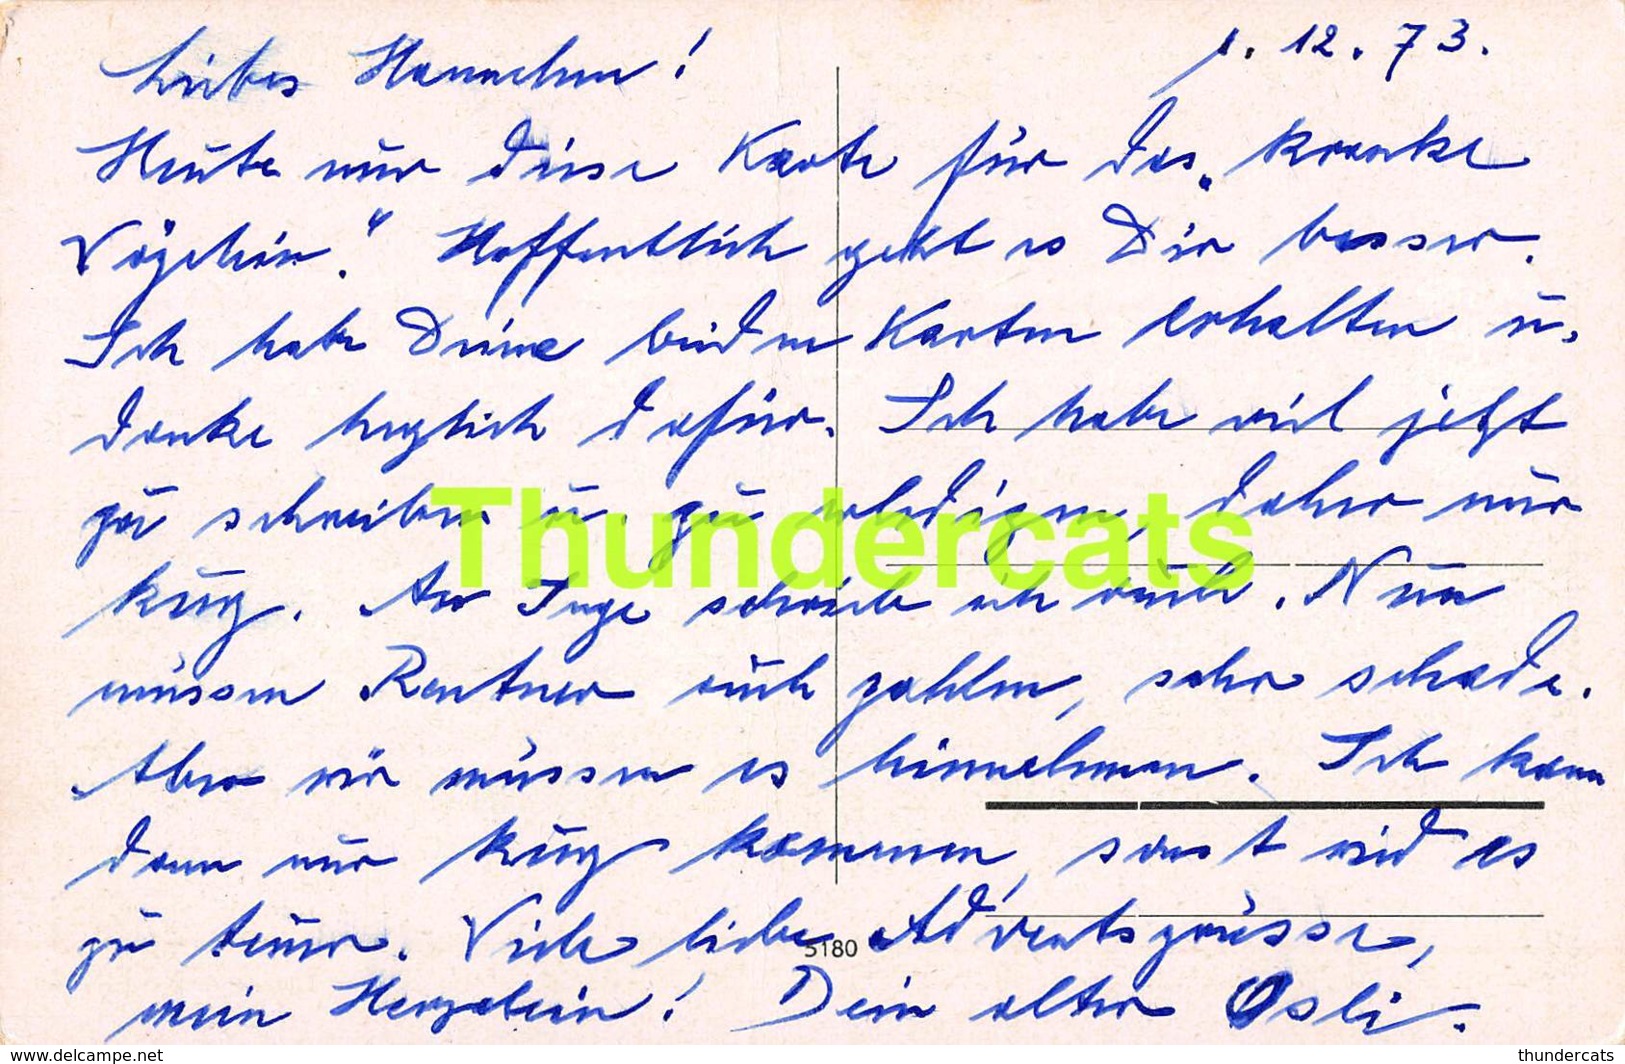 1. 12. 73.
Liebes Hannchen!
Heute nur diese Karte für das „kranke
Vögelein." Hoffentlich geht es Dir besser.
Ich habe Deine beiden Karten erhalten u.
danke herzlich dafür. Ich habe viel jetzt
zu schreiben u. zu erledigen, daher nur
kurz. An Inge schreib ich auch. Nun
müssen Rentner auch zahlen, sehr schade.
Aber wir müssen es hinnehmen. Ich kann
dann nur kurz kommen, sonst wird es
zu teuer. Viele liebe Adventsgrüsse,
mein Herzelein! Dein alter Osli.
5180
Thundercats
www.delcampe.net
thundercats